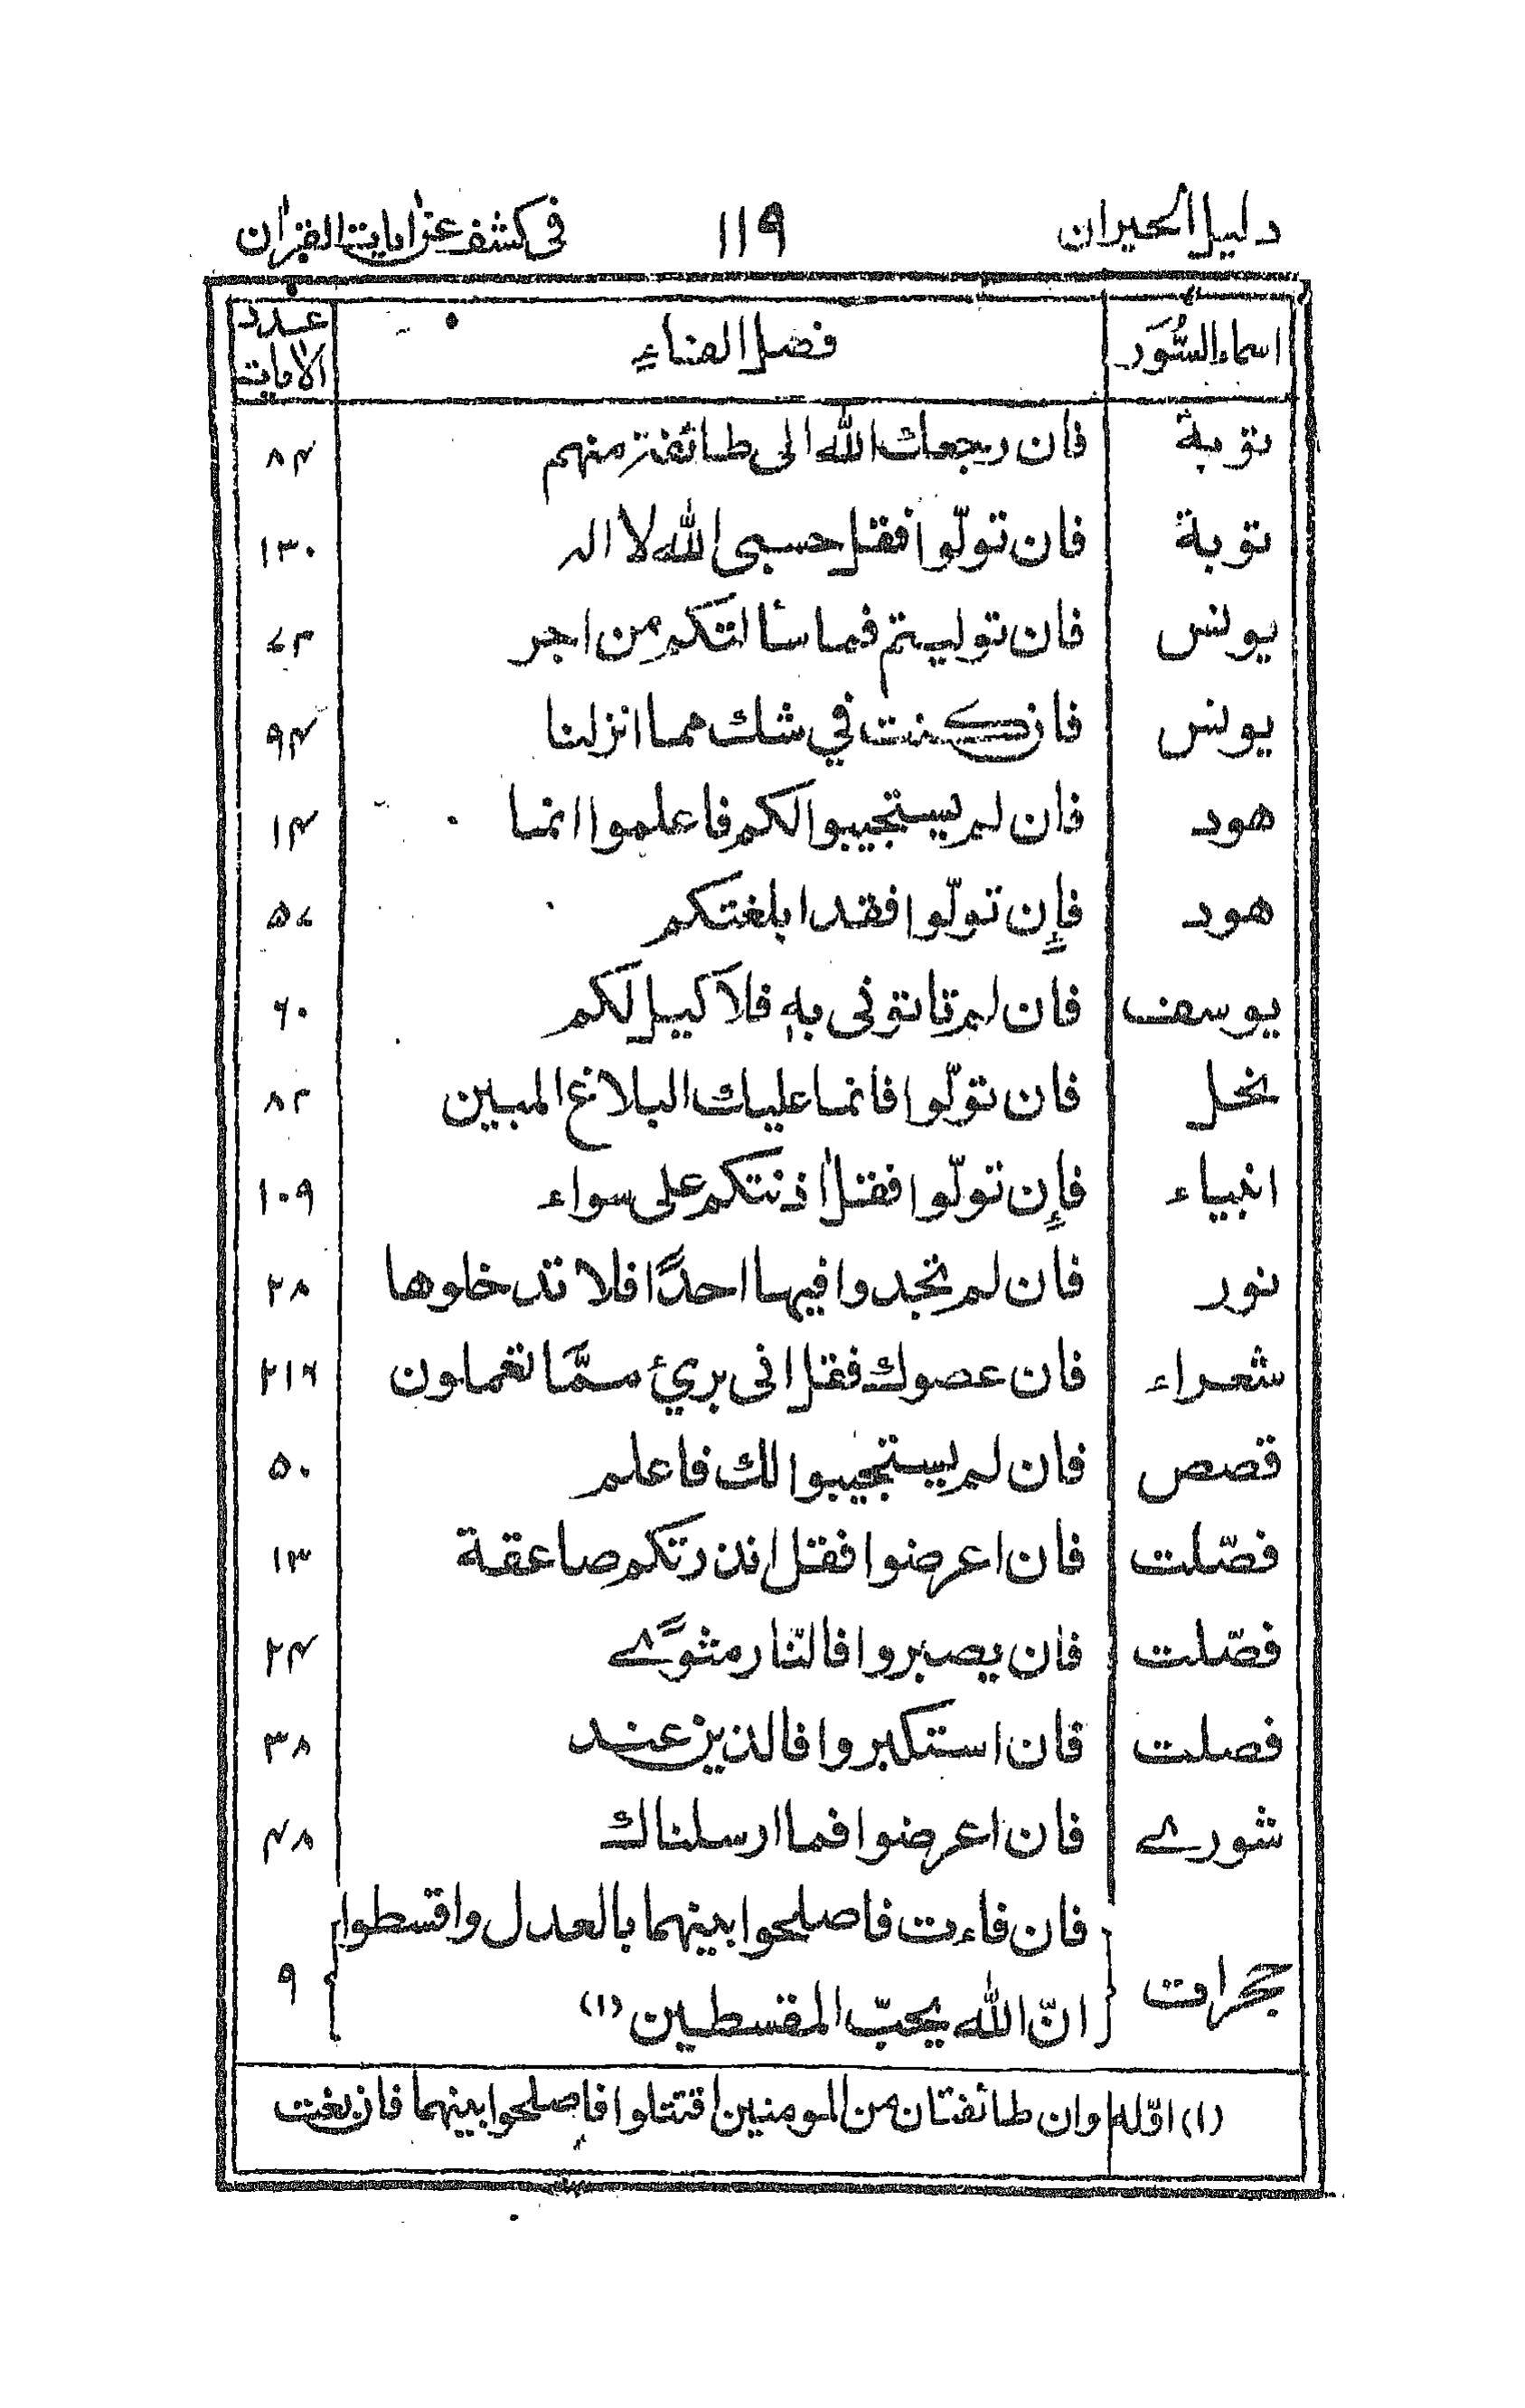 دليل الحيران ١١٩ فى كشف عن اٰيات القراٰن
اسماء السُّوَر فصل الفاءِ عدد الاٰيات
توبة فان رجعك الله الى طائفة منهم ۸۴
توبة فان تولّوا فقل حسبى الله لا اله ۱۳۰
يونس فان توليتم فما سألتكم من اجر ۷۳
يونس فان كنت في شك مما انزلنا ۹۴
هود فان لم يستجيبوا لكم فاعلموا انما ۱۴
هود فإن تولّوا فقد ابلغتكم ۵۷
يوسف فان لم تاتونى به فلا كيل لكم ۶۰
نحل فان تولّوا فانما عليك البلاغ المبين ۸۲
انبياء فإن تولّوا فقل اٰذنتكم على سواء ۱۰۹
نور فان لم تجدوا فيها احدًا فلا تدخلوها ۲۸
شعراء فان عصوك فقل انى بريئ ممّا تعملون ۲۱۶
قصص فان لم يستجيبوا لك فاعلم ۵۰
فصّلت فان اعرضوا فقل انذرتكم صاعقة ۱۳
فصّلت فان يصبروا فالنّار مثوًے ۲۴
فصلت فان استكبروا فالذين عند ۳۸
شورے فان اعرضوا فما ارسلناك ۴۸
حجرات فان فاءت فاصلحوا بينهما بالعدل واقسطوا ۹
انّ الله يحبّ المقسطين (۱)
(۱) اوّله وان طائفتان من المومنين اقتتلوا فاصلحوا بينهما فان بغت